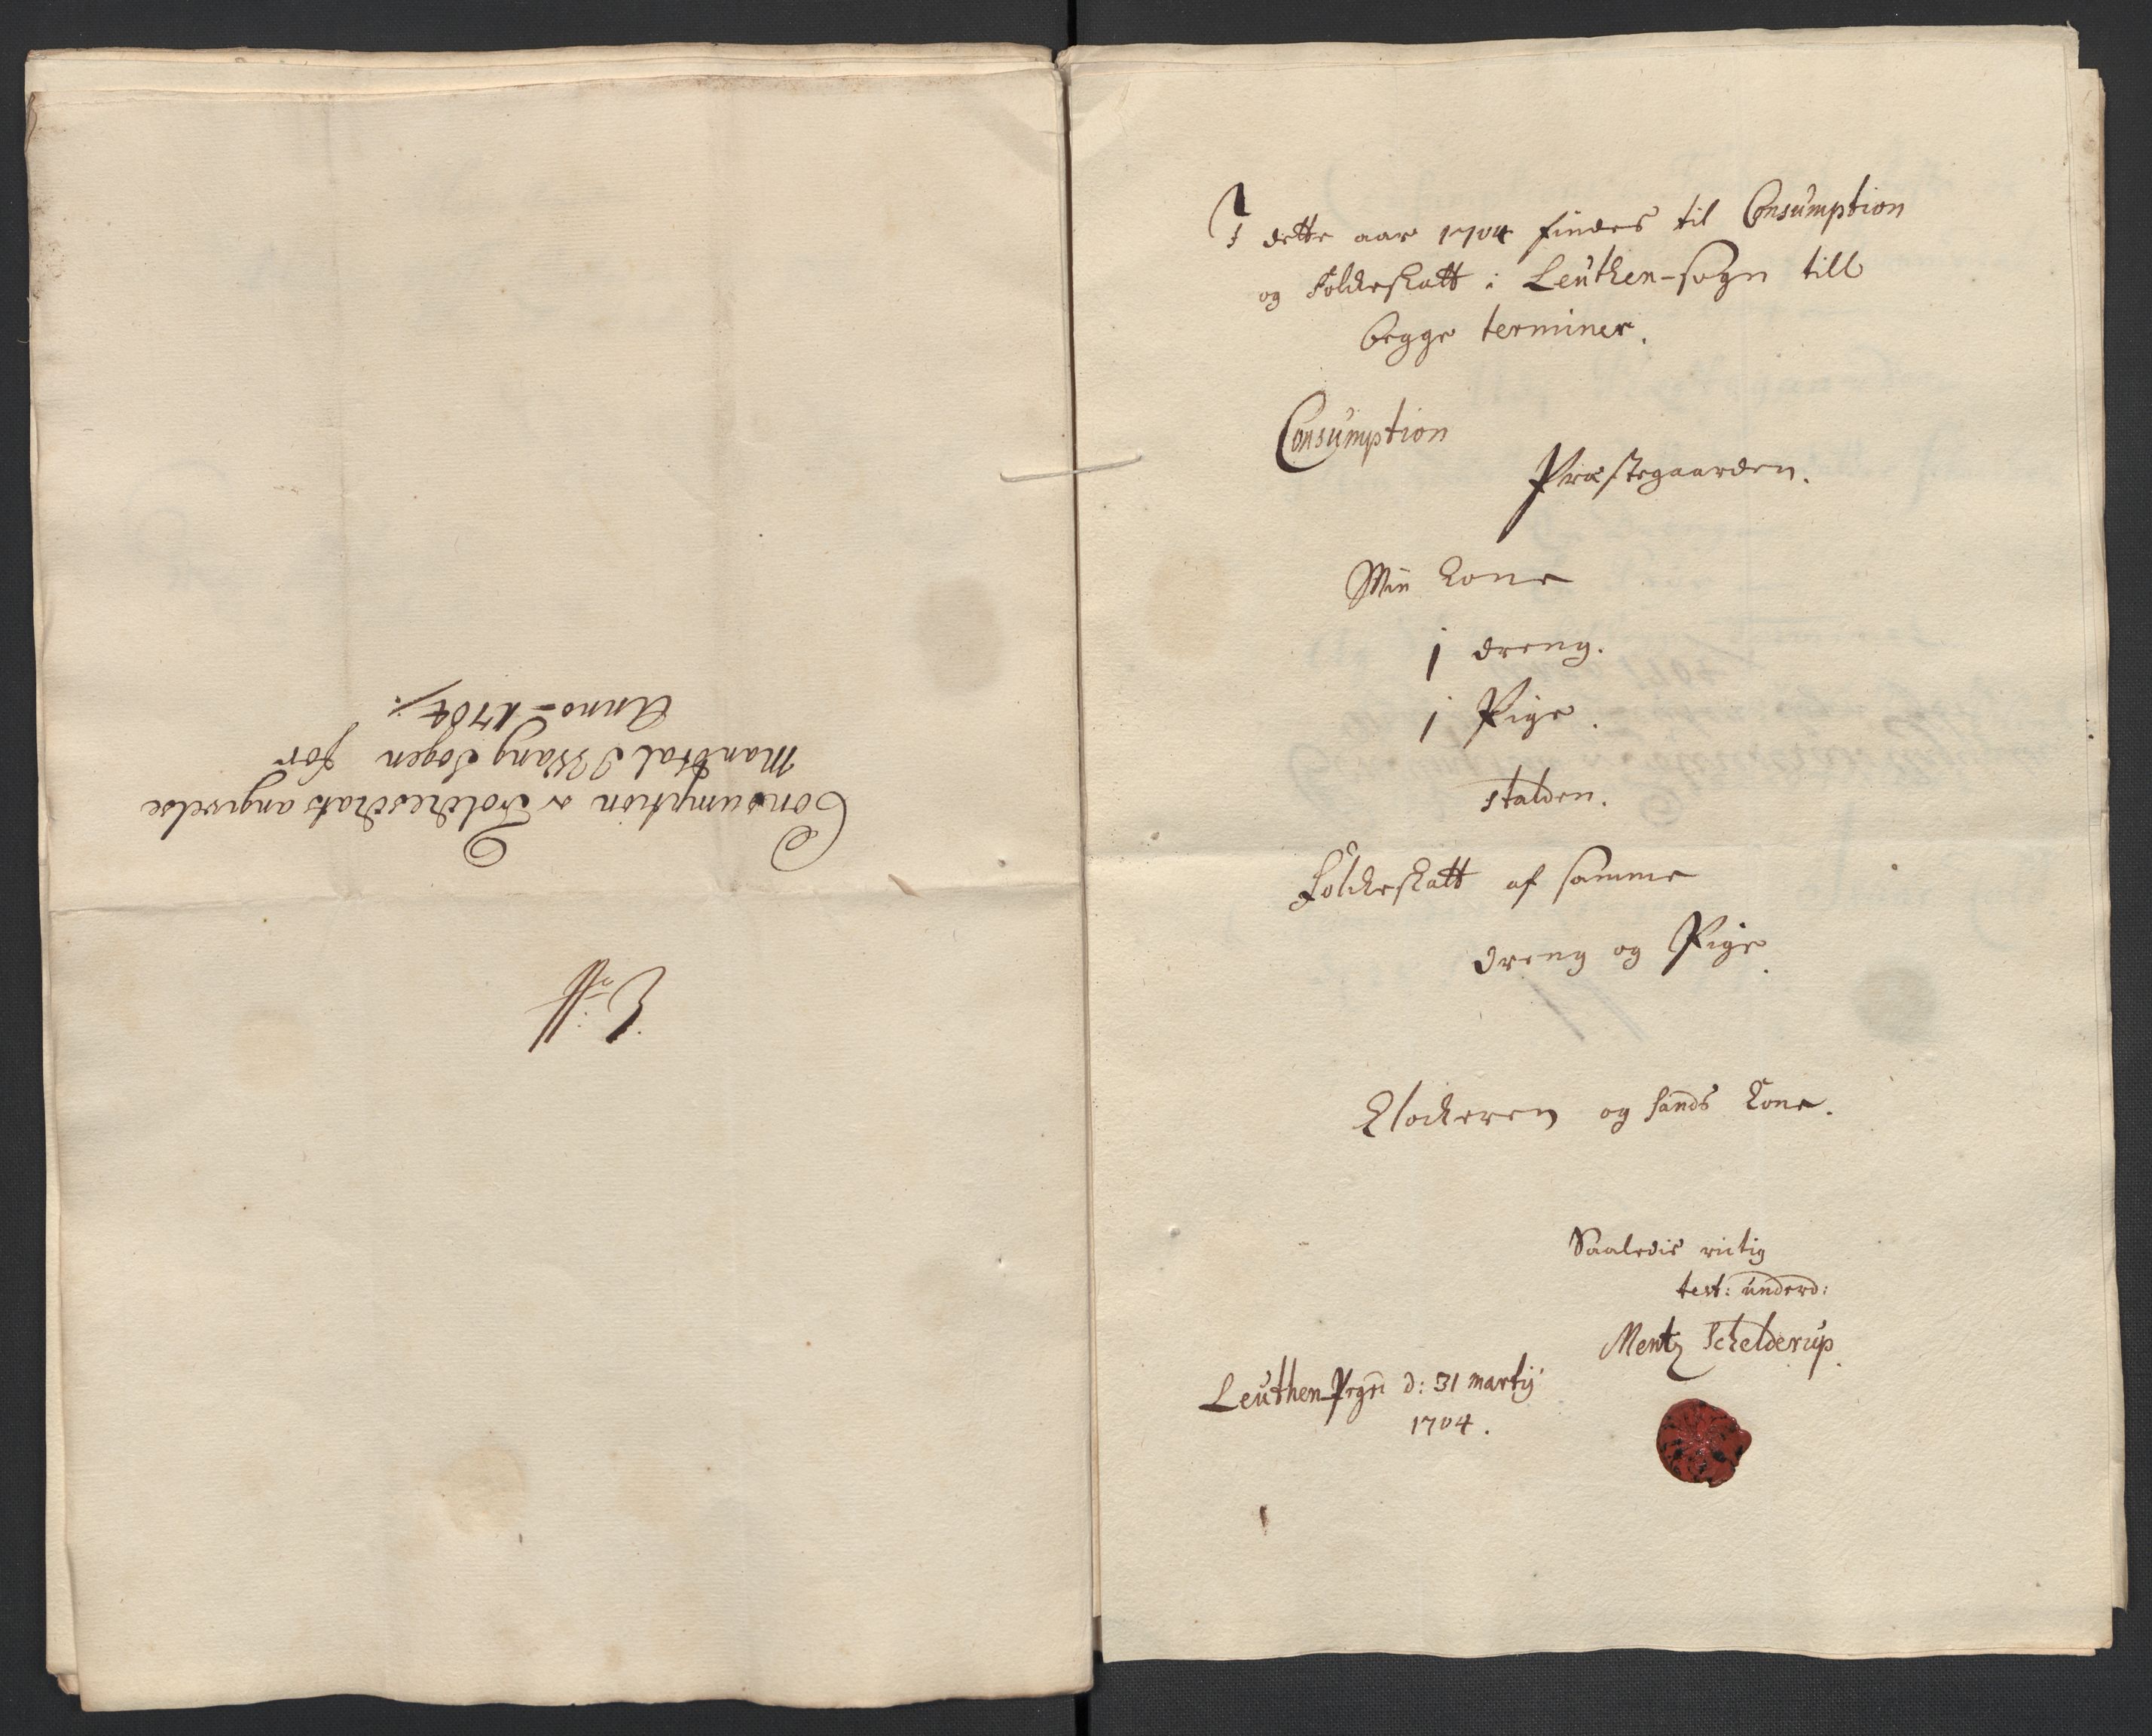 Consumption & Folckeschats angivelse
Mandtal I Wang Sogen for
Anno 1704

I dette aar 1704 findes til Consumption
og Folckeskatt i Leuthen-sogn till
begge terminer.
Consumption
Præstegaarden.
Min Kone
1 dreng.
1 Pige.
stalden.
Folckeskatt af samme
dreng og Pige.
Klockeren og hands Kone.
Saaledis rictig
test: underd:
Mentz Schelderup.
Leuthen Prgrd d: 31 martij
1704.